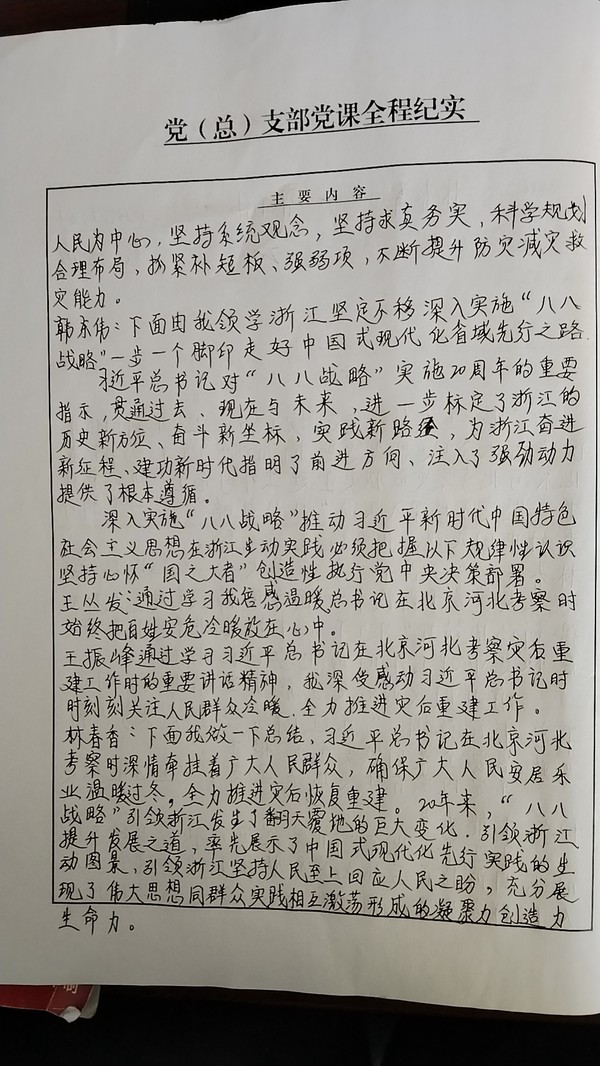 党（总）支部党课全程纪实
主要内容
人民为中心，坚持系统观念，坚持求真务实，科学规划
合理布局，抓紧补短板、强弱项，不断提升防灾减灾救
灾能力。
韩东伟：下面由我领学浙江坚定不移深入实施“八八
战略”一步一个脚印走好中国式现代化省域先行之路
习近平总书记对“八八战略”实施20周年的重要
指示，贯通过去、现在与未来，进一步标定了浙江的
历史新方位、奋斗新坐标，实践新路径，为浙江奋进
新征程、建功新时代指明了前进方向、注入了强劲动力
提供了根本遵循。
深入实施“八八战略”推动习近平新时代中国特色
社会主义思想在浙江生动实践必须把握以下规律性认识
坚持心怀“国之大者”创造性执行党中央决策部署。
王丛发：通过学习我倍感温暖总书记在北京河北考察时
始终把百姓安危冷暖放在心中。
王振峰通过学习习近平总书记在北京河北考察灾后重
建工作时的重要讲话精神，我深受感动习近平总书记时
时刻刻关注人民群众冷暖.全力推进灾后重建工作。
林春香：下面我做一下总结，习近平总书记在北京河北
考察时深情牵挂着广大人民群众，确保广大人民安居乐
业温暖过冬，全力推进灾后恢复重建。20年来，“八八
战略”引领浙江发生了翻天覆地的巨大变化.引领浙江
提升发展之道，率先展示了中国式现代化先行实践的生
动图景，引领浙江坚持人民至上回应人民之盼，充分展
现了伟大思想同群众实践相互激荡形成的凝聚力创造力
生命力。